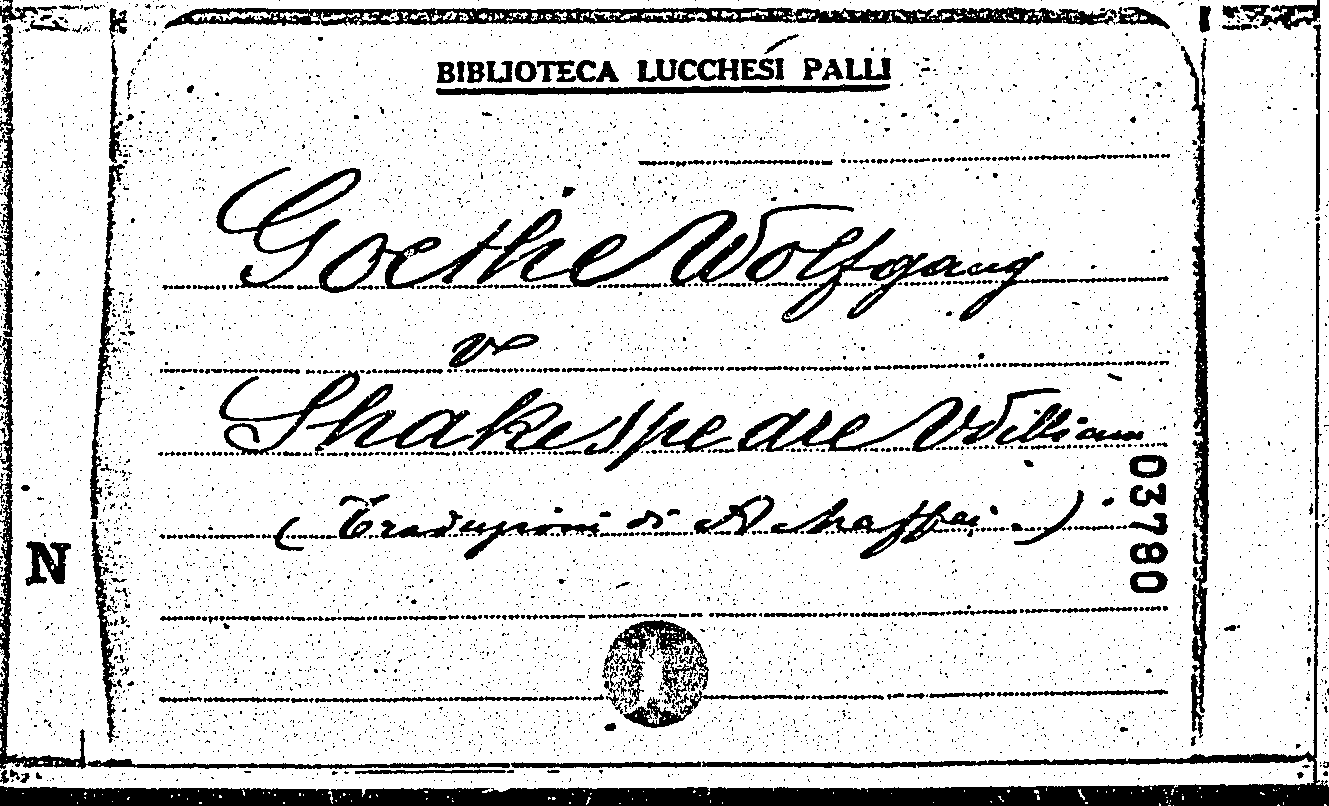 BIBLIOTECA LUCCHESI PALLI
Goethe Wolfgang
ve
Shakespeare William
(Traduzioni di A. Maffei.)
03780
N